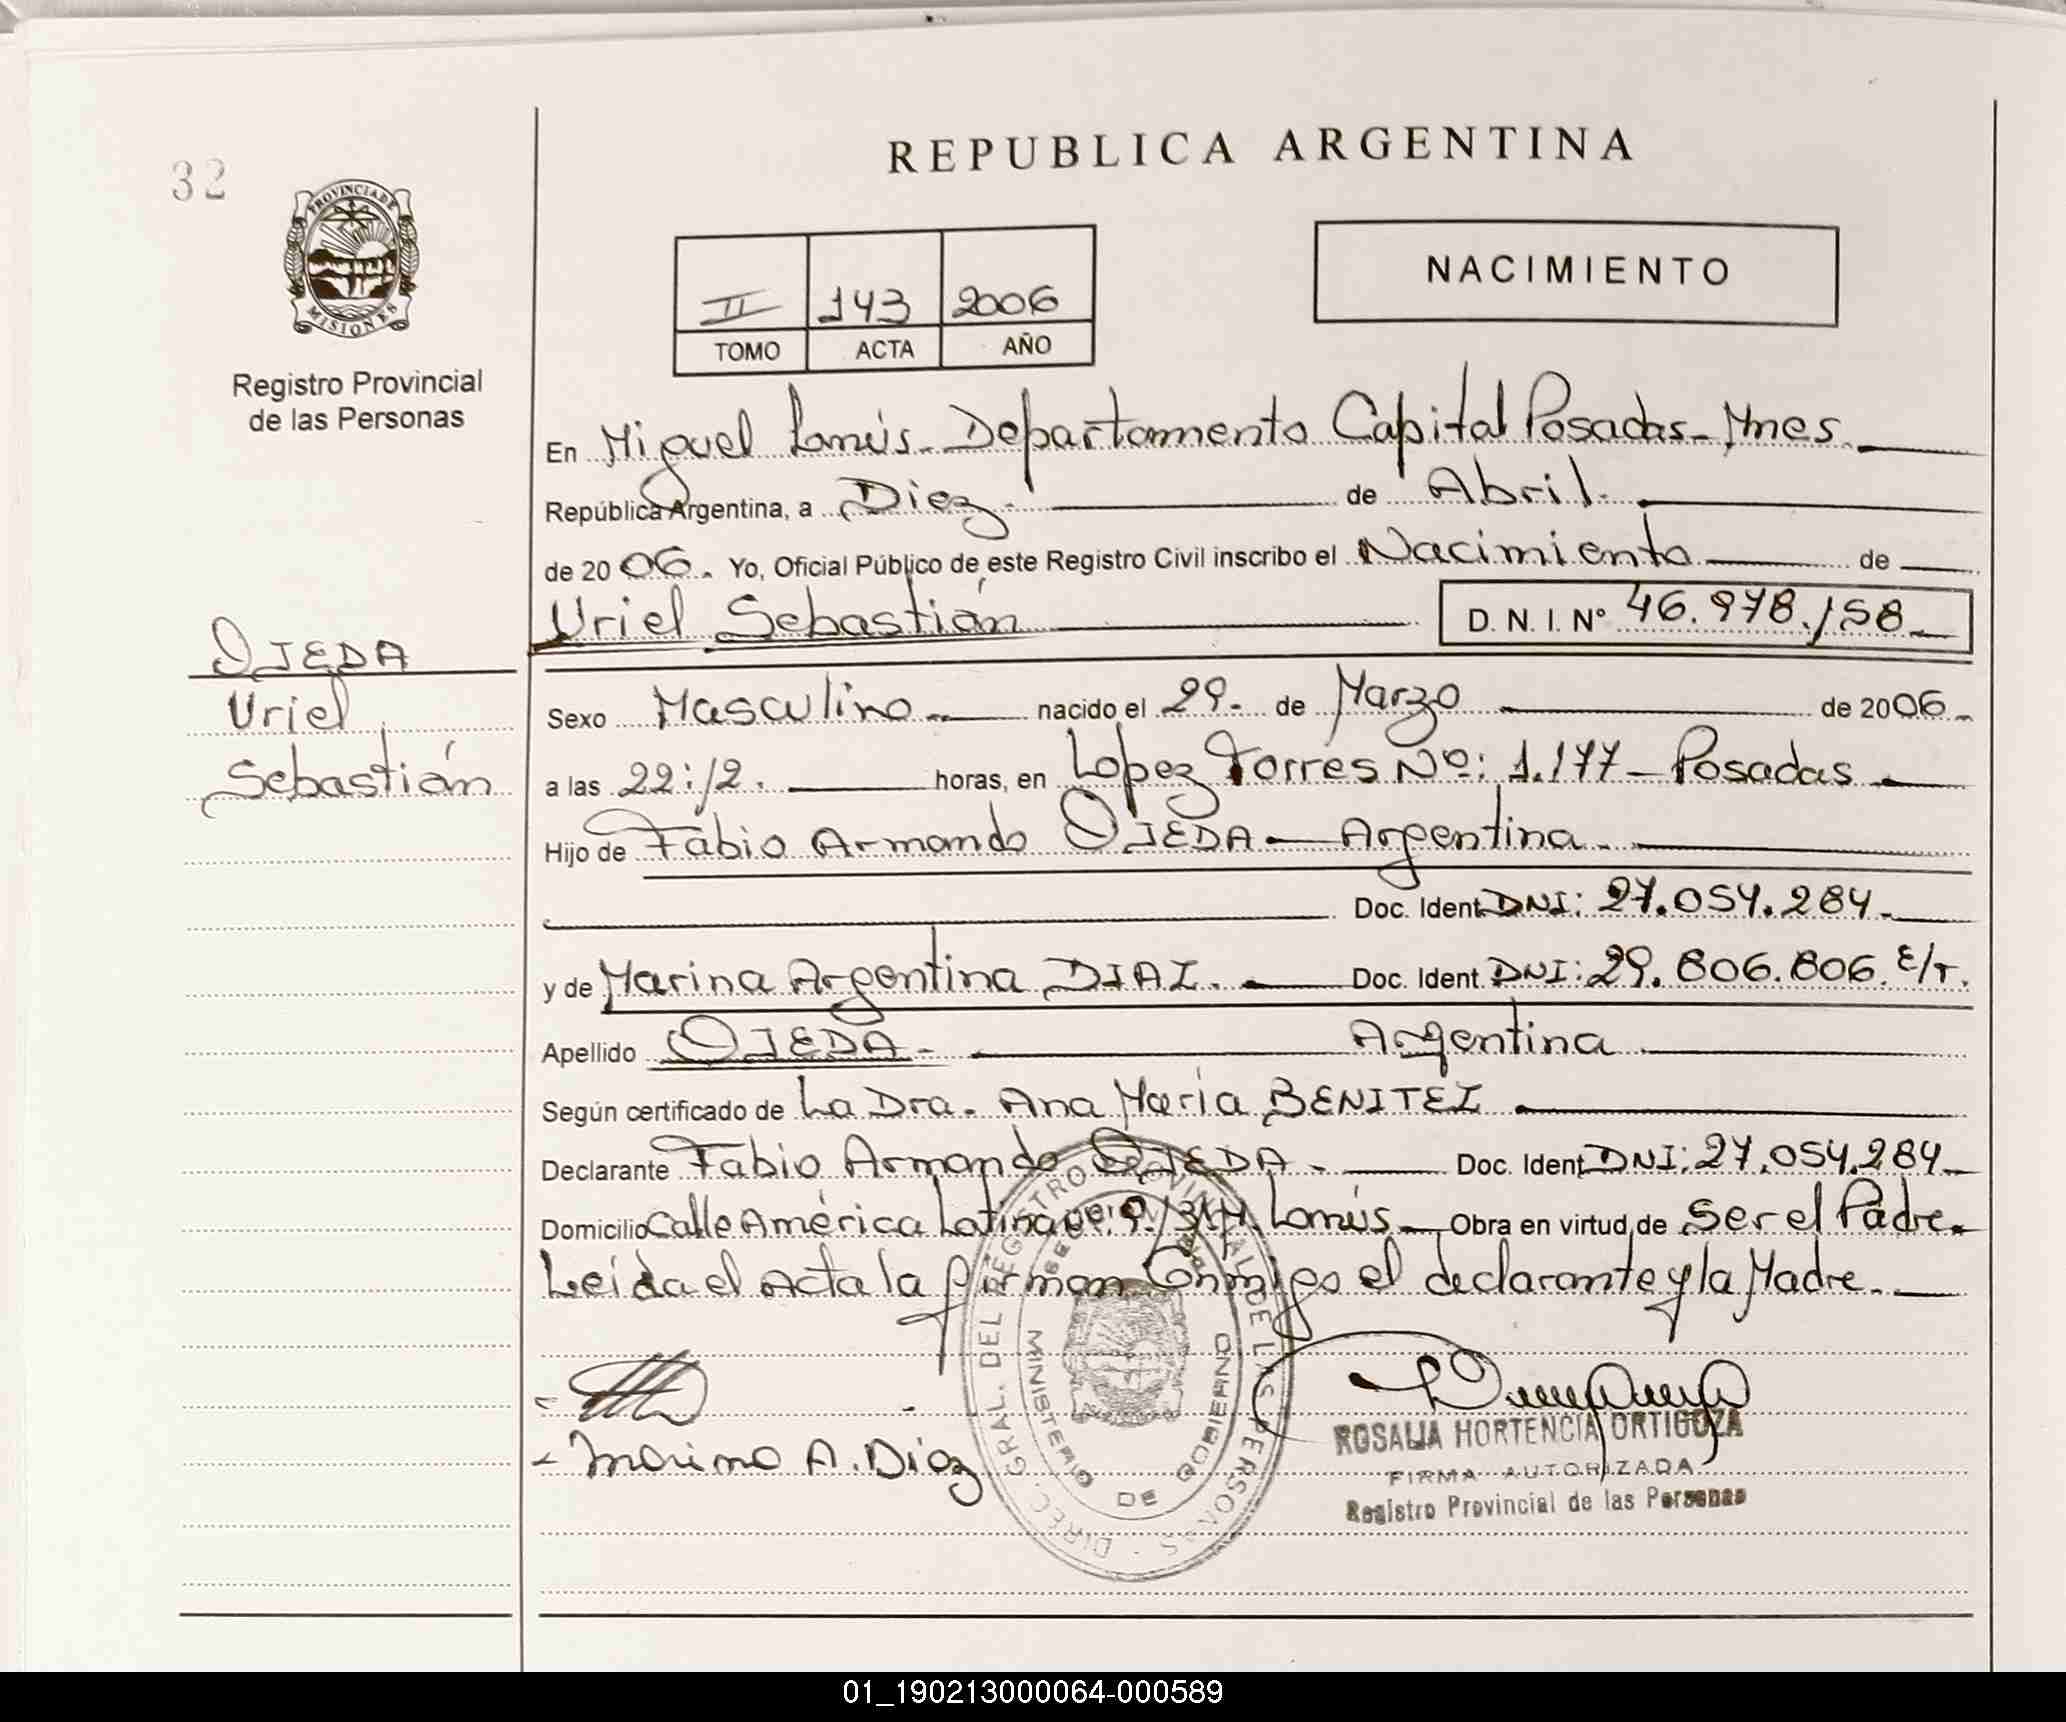 32
PROVINCIA DE
MISIONES
Registro Provincial
de las Personas
REPUBLICA ARGENTINA
NACIMIENTO
II 143 2006
TOMO ACTA AÑO
En Miguel Lanús - Departamento Capital Posadas - Mnes.
República Argentina, a Diez. de Abril.
de 2006. Yo, Oficial Público de este Registro Civil inscribo el Nacimiento de
Uriel Sebastián D. N. I. Nº 46.978.158
OJEDA
Uriel
Sebastián
Sexo Masculino nacido el 29. de Marzo de 2006
a las 22:12. horas, en Lopez Torres Nº: 1.177 - Posadas
Hijo de Fabio Armando OJEDA - Argentina.
Doc. Ident. DNI: 27.054.284.
y de Marina Argentina DIAZ. Doc. Ident. DNI: 29.806.806. E/T.
Apellido OJEDA - Argentina
Según certificado de La Dra. Ana María BENITEZ
Declarante Fabio Armando OJEDA. Doc. Ident. DNI: 27.054.284
Domicilio Calle América Latina Lanús. Obra en virtud de Ser el Padre.
Leída el Acta la firman Conmigo el declarante y la Madre.
Marina A. Diaz
DIREC. GRAL. DEL REGISTRO PROVINCIAL DE LAS PERSONAS
MINISTERIO DE GOBIERNO
ROSALIA HORTENCIA ORTIGOZA
FIRMA AUTORIZADA
Registro Provincial de las Personas
01_190213000064-000589